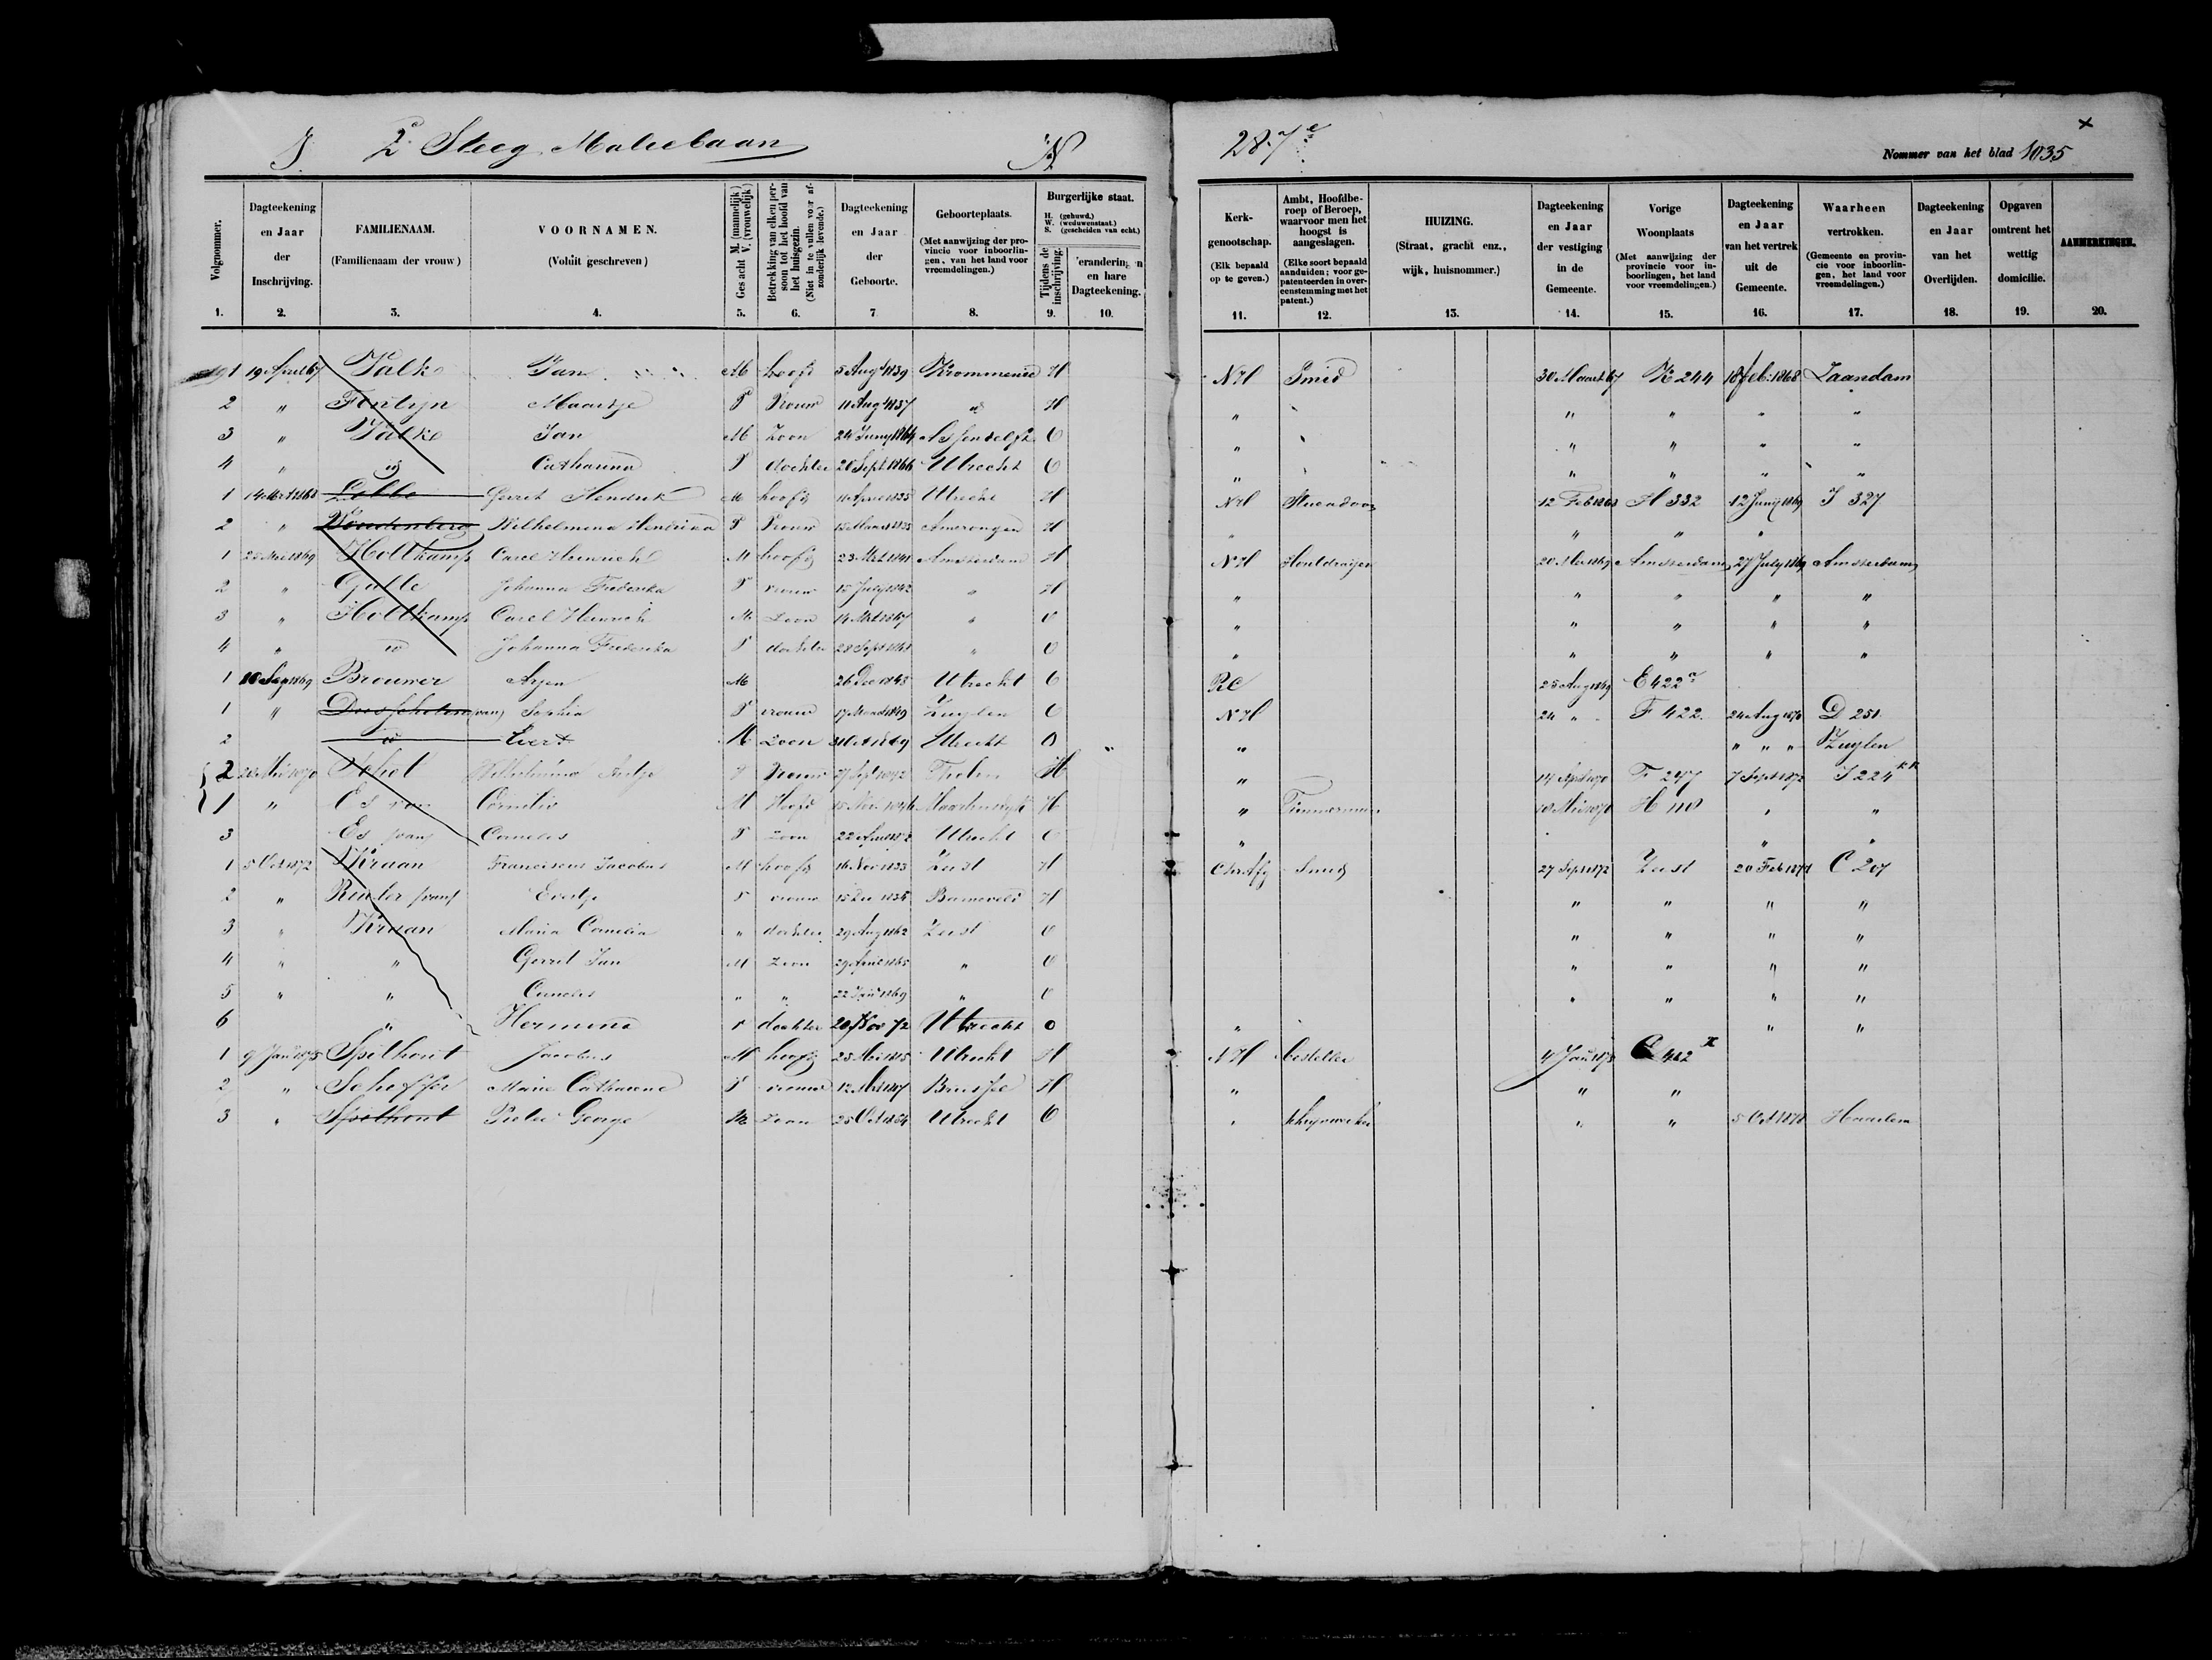 J. 2e Steeg Maliebaan N 287e
Nommer van het blad 1035
Volgnommer. Dagteekening en Jaar der Inschrijving. FAMILIENAAM. (Familienaam der vrouw) VOORNAMEN. (Voluit geschreven) Geslacht M. (mannelijk) V. (vrouwelijk) Betrekking van elken persoon tot het hoofd van het huisgezin. (Niet in te vullen voor afzonderlijk levende.) Dagteekening en Jaar der Geboorte. Geboorteplaats. (Met aanwijzing der provincie voor inboorlingen, van het land voor vreemdelingen.) Burgerlijke staat. H. (gehuwd.) W. (weduwenstaat.) S. (gescheiden van echt.) Tijdens de inschrijving. Verandering en en hare Dagteekening. Kerkgenootschap. (Elk bepaald op te geven.) Ambt, Hoofdberoep of Beroep, waarvoor men het hoogst is aangeslagen. (Elke soort bepaald aanduiden; voor gepatenteerden in overeenstemming met het patent.) HUIZING. (Straat, gracht enz., wijk, huisnommer.) Dagteekening en Jaar der vestiging in de Gemeente. Vorige Woonplaats (Met aanwijzing der provincie voor inboorlingen, het land voor vreemdelingen.) Dagteekening en Jaar van het vertrek uit de Gemeente. Waarheen vertrokken. (Gemeente en provincie voor inboorlingen, het land voor vreemdelingen.) Dagteekening en Jaar van het Overlijden. Opgaven omtrent het wettig domicilie. AANMERKINGEN.
1. 2. 3. 4. 5. 6. 7. 8. 9. 10. 11. 12. 13. 14. 15. 16. 17. 18. 19. 20.
1 19 April 67 Valk Jan M hoofd 5 Aug 1839 Krommenie H NH Smid 30 Maart 67 K 244 18 Feb: 1868 Zaandam
2 " Fontijn Maartje V Vrouw 11 Aug 1837 " H " " " " "
3 " Valk Jan M Zoon 24 Juny 1864 Assendelft O " " " " "
4 " id Catharina V dochter 20 Sept 1866 Utrecht O " " " " "
1 14 Mrt 1868 Gerrit Hendrik M hoofd 11 April 1835 Utrecht H NH Stucadoor 12 Feb 1868 H 332 12 Juny 1869 J 327
2 " Woudenberg Wilhelmina Hendrina V Vrouw 15 Maart 1835 Amerongen H " " " "
1 25 Mei 1869 Holtkamp Carel Heinrich M hoofd 23 Mrt 1841 Amsterdam H NH Houtdraijer 20 Mei 1869 Amsterdam 27 July 1869 Amsterdam
2 " Galle Johanna Frederika V vrouw 15 July 1842 " H " " " " "
3 " Holtkamp Carel Heinrich M Zoon 14 Mrt 1867 " O " " " " "
4 " id Johanna Frederika V dochter 28 Sept 1868 " O " " " " "
1 10 Sep 1869 Brouwer Arjen M 26 Dec 1843 Utrecht O RC 25 Aug 1869 E 422 a
1 " (van) Sophia V vrouw 17 Maart 1849 Zuylen O NH 24 " F 422. 24 Aug 1870 D 251
2 id Evert M Zoon Utrecht O " " " " Zuylen
2 Wilhelmina Antje V Vrouw 27 Sept 1842 Tholen H " 14 April 1870 F 247 7 Sept 1872 J 224 KK
1 " Es van Cornelis M Hoofd Maartensdijk H " Timmerman 10 Mei 1870 H " "
3 Es van Cornelis Zoon 22 April 1872 Utrecht O " " "
1 5 Oct 1872 Kraan Franciscus Jacobus M hoofd 16 Nov 1833 Zeist H Chr Afg Smid 27 Sept 1872 Zeist 20 Feb 1874 C 207
2 " van Evertje V vrouw 15 Dec 1835 Barneveld H " " " "
3 " Kraan Maria Cornelia " dochter 29 Aug 1862 Zeist O " " " "
4 " " Gerrit Jan M Zoon 29 April 1865 " O " " " "
5 " " Cornelis " " 22 Jan 1869 " O " " " "
6 " Hermina V dochter 20 Nov 72 Utrecht O " " "
1 9 Jan 1875 Spilhout Jacobus M hoofd 23 Mei 1815 Utrecht H NH besteller 4 Jan 1875 C 412
2 " Scheffer Marie Catharine V vrouw Brussel H " " "
3 " Spilhout Pieter George M Zoon 25 Oct 1854 Utrecht O " " " 5 Oct 1878 Haarlem